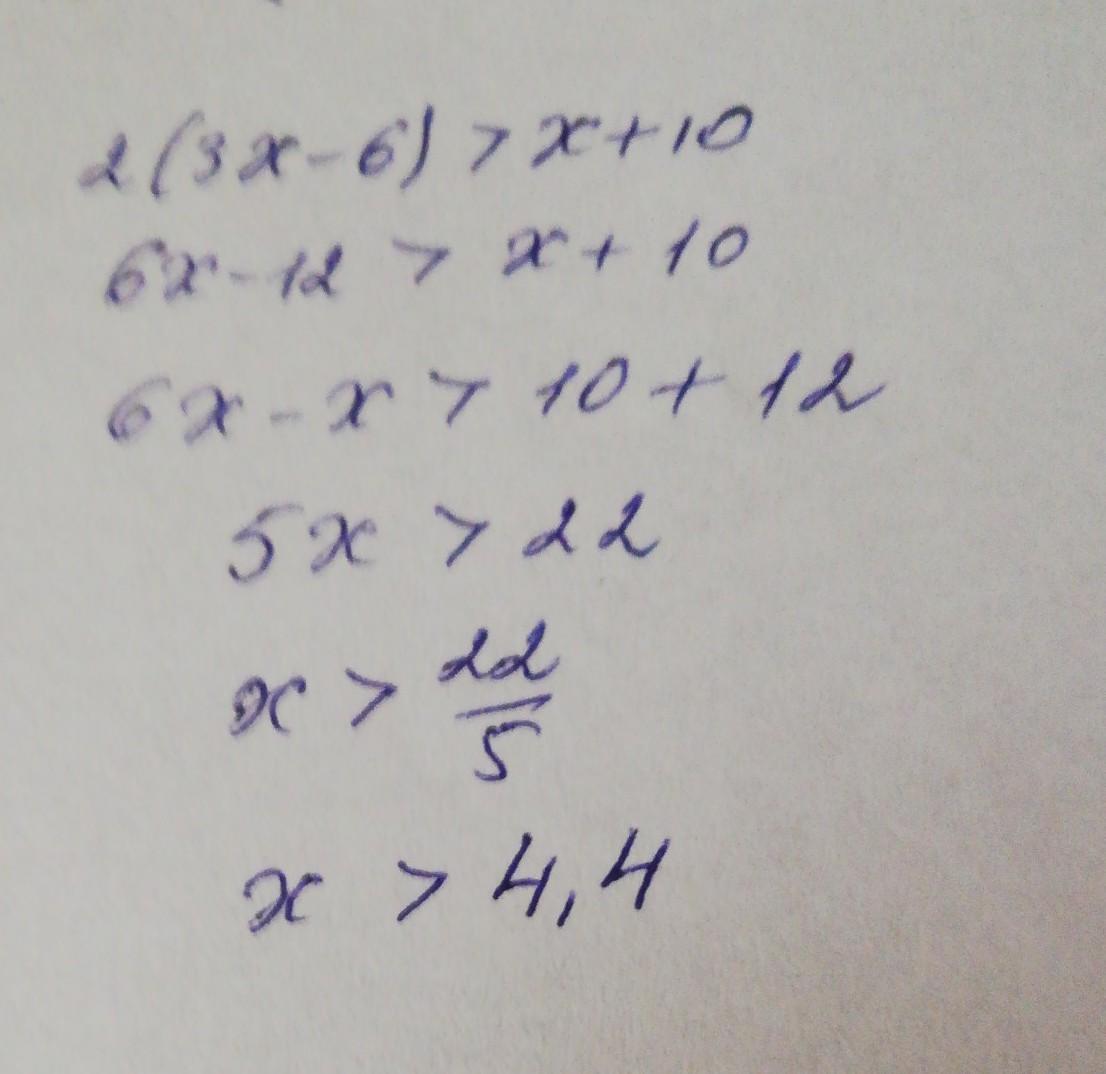 2(3x-6) > x+10
6x-12 > x+10
6x-x > 10+12
5x > 22
x > 22/5
x > 4,4